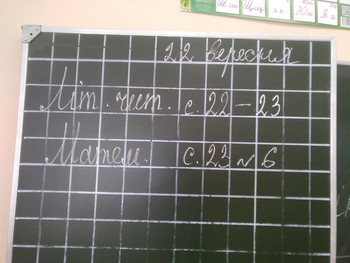 22 вересня
Літ. чит. с. 22 – 23
Матем. с. 23 № 6